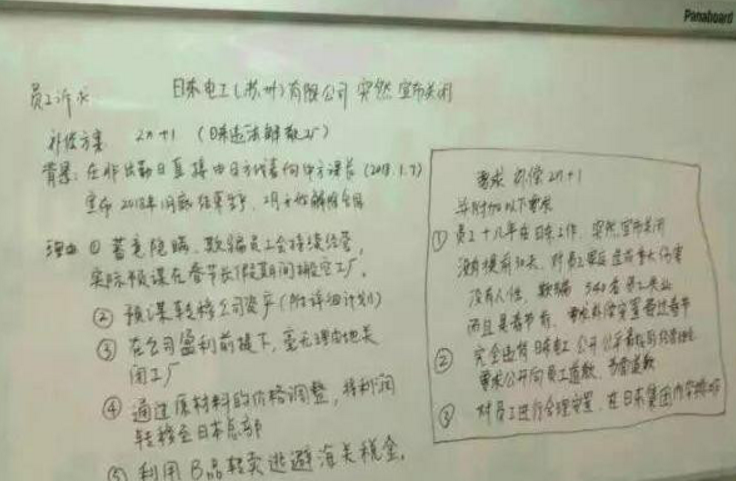 Panaboard
员工诉求
日东电工(苏州)有限公司 突然宣布关闭
补偿方案 2n+1 (日东违法解散工厂)
背景: 在非出勤日直接由日方代表向中方课长 (2018.1.7)
宣布 2018年1月底结束生产, 2月开始解除合同
理由 ① 蓄意隐瞒、欺骗员工会持续经营,
实际预谋在春节长假期间搬空工厂。
② 预谋转移公司资产 (附详细计划)
③ 在公司盈利前提下, 毫无理由地关
闭工厂
④ 通过原材料的价格调整, 将利润
转移至日本总部
⑤ 利用B品转卖逃避海关税金。
要求 补偿 2n+1
并附加以下要求
① 员工十几年在日东工作, 突然宣布关闭
没有提前30天, 对员工
没有人性, 欺骗 540名员工失业
而且是春节前,
② 完全违背日东电工公开公平
要求公开向员工道歉, 书面道歉
③ 对员工进行合理安置, 在日东集团内